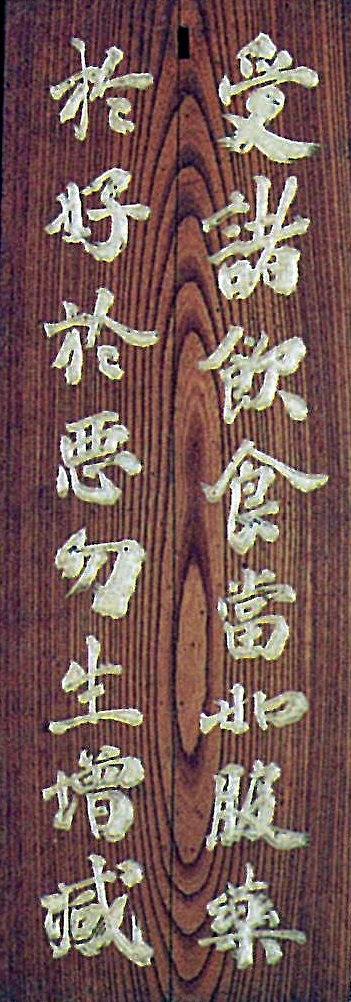 受諸飲食當如服藥
於好於悪勿生增減